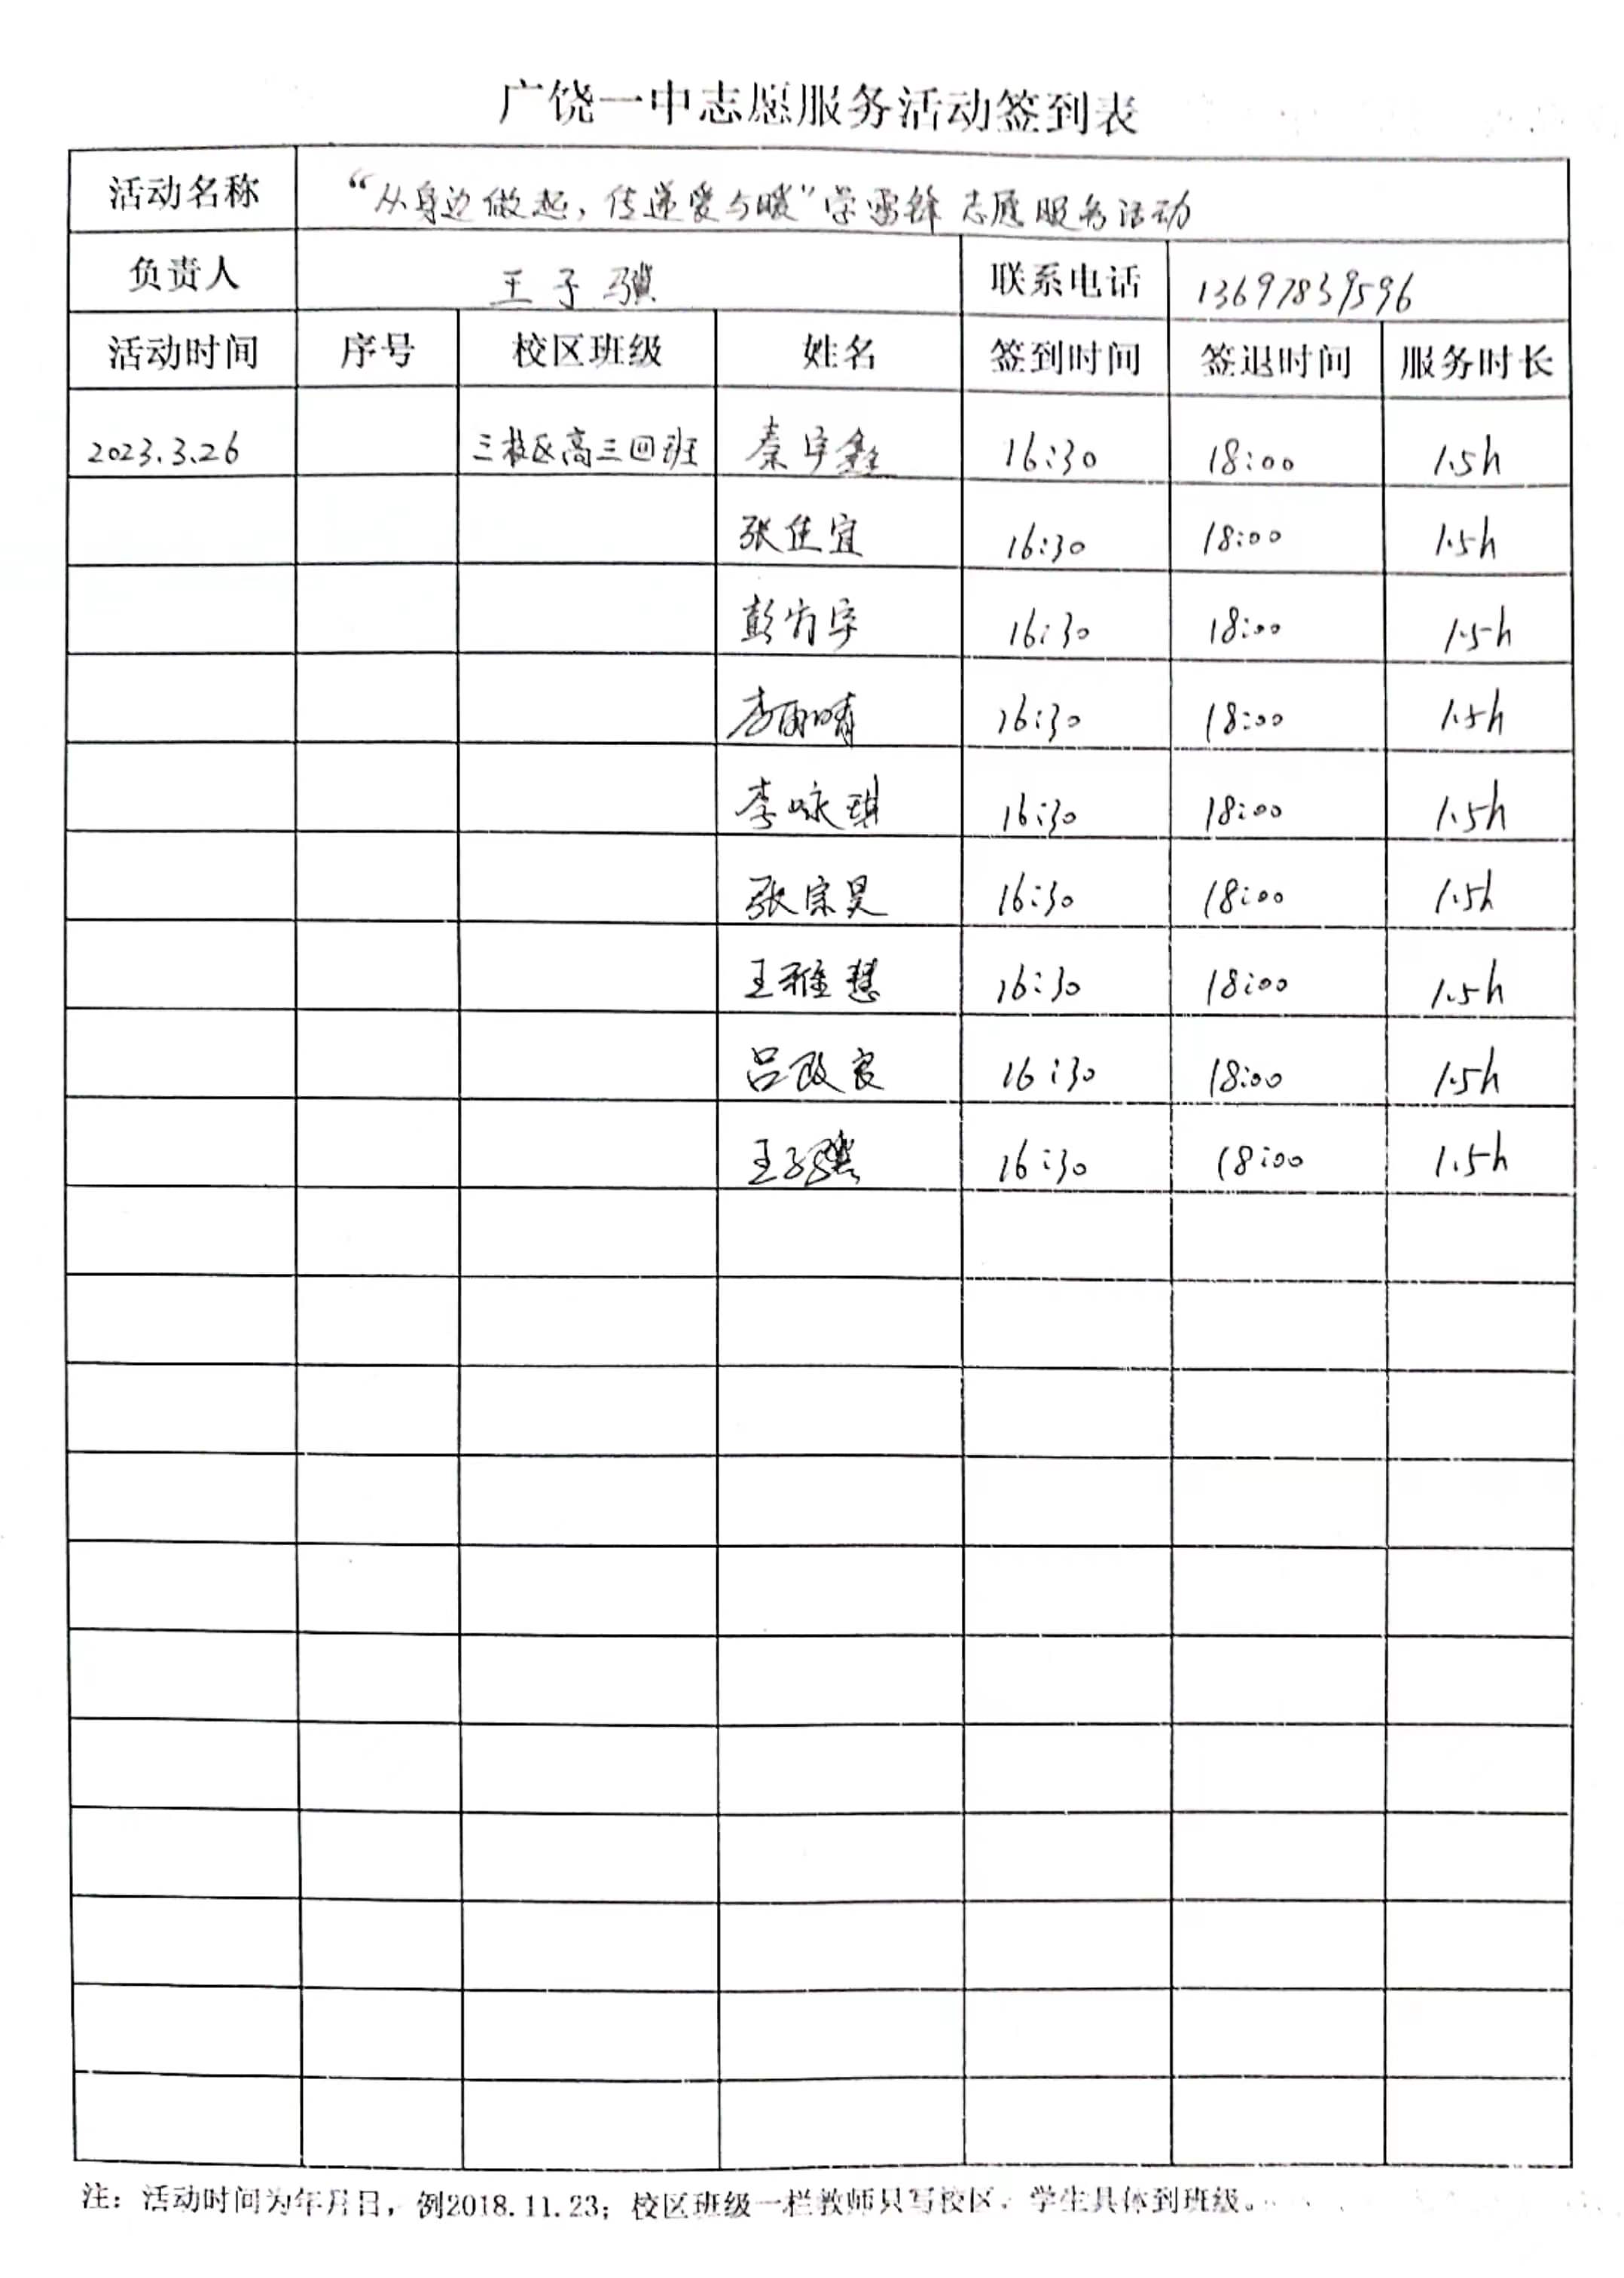 广饶一中志愿服务活动签到表
活动名称 “从身边做起，传递爱与暖”学雷锋志愿服务活动
负责人 王子骥 联系电话 13697839596
活动时间 序号 校区班级 姓名 签到时间 签退时间 服务时长
2023.3.26 三校区高三四班 秦宇鑫 16:30 18:00 1.5h
张佳宜 16:30 18:00 1.5h
彭宇 16:30 18:00 1.5h
李雨晴 16:30 18:00 1.5h
李咏琪 16:30 18:00 1.5h
张宗昊 16:30 18:00 1.5h
王雅慧 16:30 18:00 1.5h
吕政良 16:30 18:00 1.5h
王子骥 16:30 18:00 1.5h
注：活动时间为年月日，例2018.11.23；校区班级一栏教师只写校区，学生具体到班级。